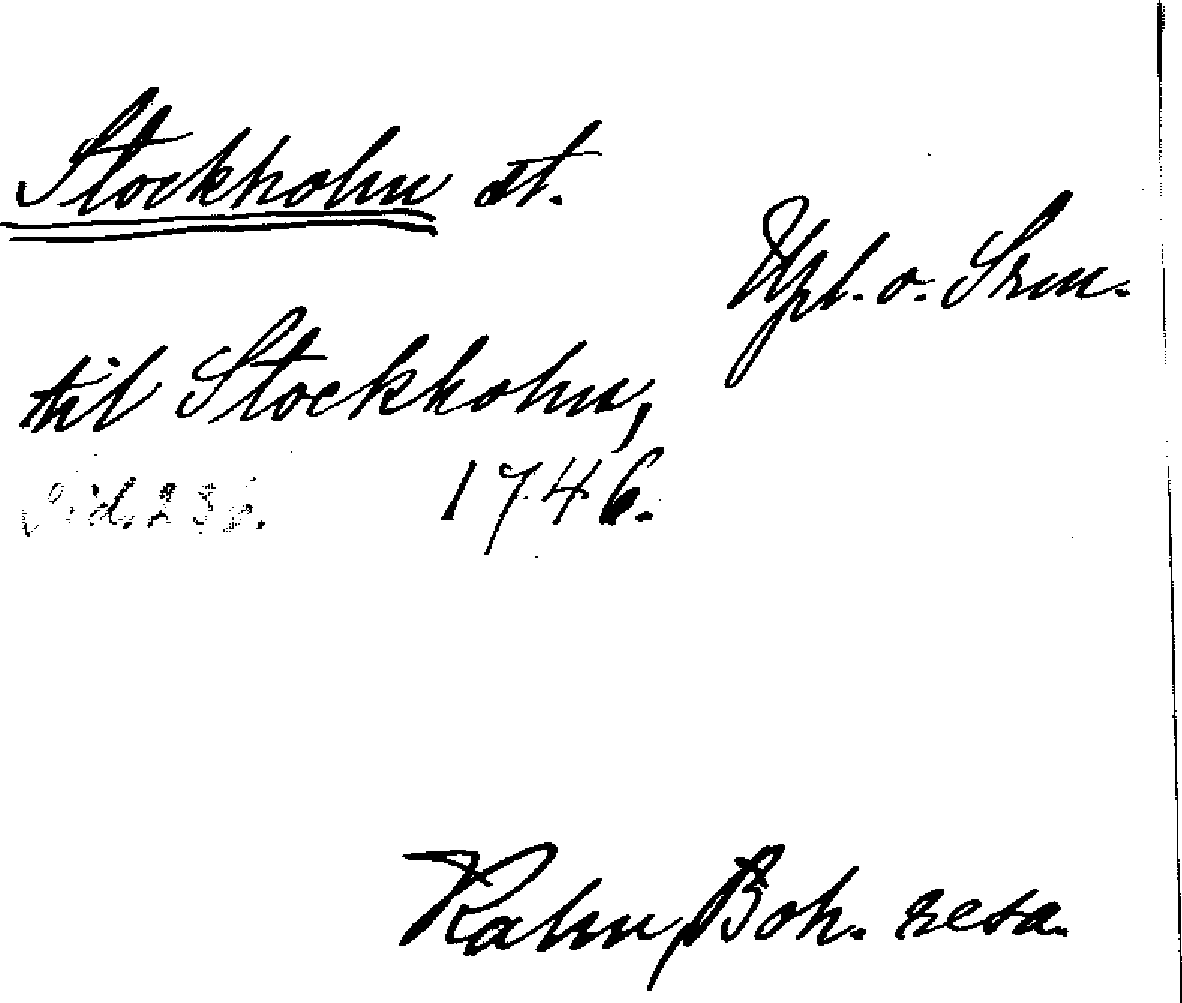 Stockholm st.
Upl. o. Srm.
til Stockholm,
Sid. 236. 1746.
Kalm, Boh. resa.